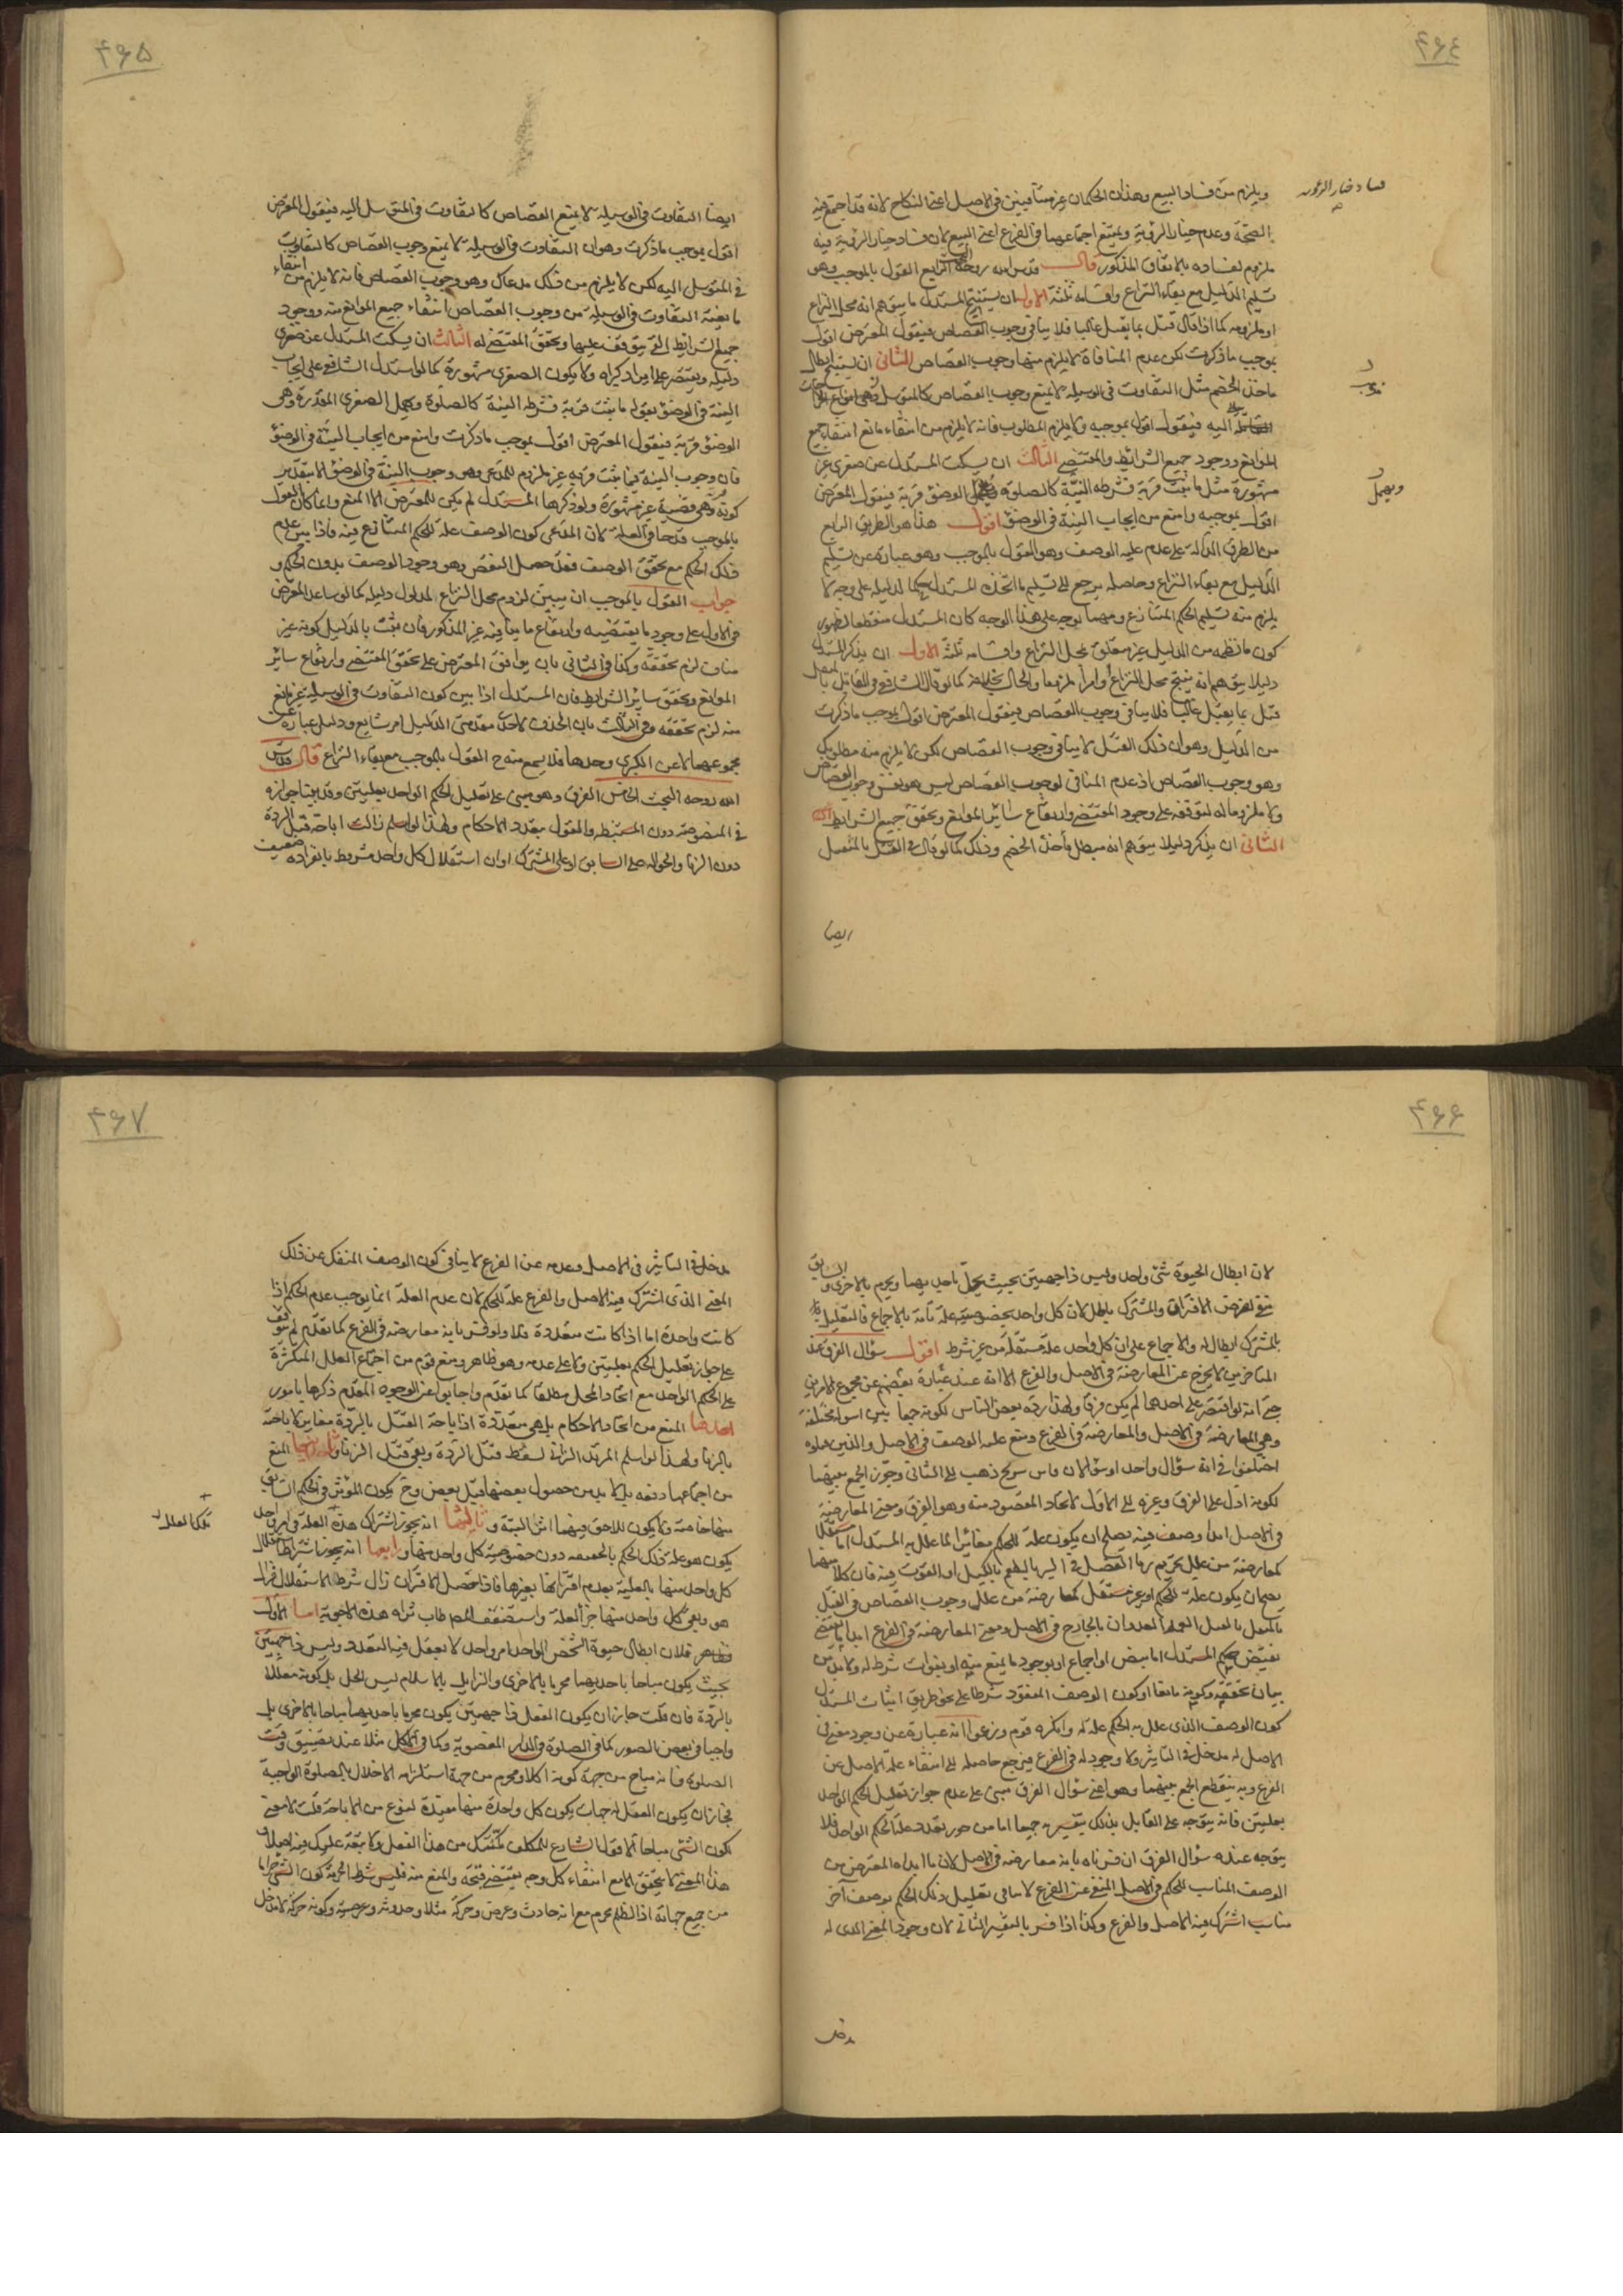 ٤٦٤
ويلزم منه فساد البيع وهذان الحكمان غير متنافيين في الاصل اعني النكاح لانه قد اجتمع فيه
الصحة وعدم خيار الرؤية ويمتنع اجتماعهما في الفرع اعني البيع لان فساد خيار الرؤية فيه
ملزوم لفساده بالاتفاق المذكور قال قدس الله روحه البحث الرابع القول بالموجب وهو
تسليم الدليل مع بقاء النزاع واقسامه ثلثة الاول ان يستنتج المستدل ما يتوهم انه محل النزاع
او ملزومه كما اذا قال قتل بما يقتل غالبا فلا ينافي وجوب القصاص فيقول المعترض اقول
بموجب ما ذكرت لكن عدم المنافاة لا يلزم منها وجوب القصاص الثاني ان يستنتج ابطال
ماخذ الخصم مثل التفاوت في الوسيلة لا يمنع وجوب القصاص كالمتوسل
اليه فيقول اقول بموجبه ولا يلزم المطلوب فانه لا يلزم من انتفاء مانع انتفاء جميع
الموانع ووجود جميع الشرائط والمقتضي الثالث ان يسكت المستدل عن صغرى غير
مشهورة مثل ما ثبت قربة فشرطه النية كالصلوة ويهمل الوضوء قربة فيقول المعترض
اقول بموجبه وامنع من ايجاب النية في الوضوء اقول هذا هو الطريق الرابع
من الطرق الدالة على عدم علية الوصف وهو القول بالموجب وهو عبارة عن تسليم
الدليل مع بقاء النزاع وحاصله يرجع الى تسليم ما اتخذه المستدل حكما لدليله على وجه لا
يلزم منه تسليم الحكم المتنازع ومهما توجه على هذا الوجه كان المستدل منقطعا لظهور
كون ما نظمه من الدليل غير متعلق بمحل النزاع واقسامه ثلثة الاول ان يذكر المستدل
دليلا يتوهم انه ينتج محل النزاع او امرا ملزوما والحال بخلافه كما لو قال الشافعي في القاتل بالمثقل
قتل بما يقتل غالبا فلا ينافي وجوب القصاص فيقول المعترض اقول بموجب ما ذكرت
من الدليل وهو ان ذلك القتل لا ينافي وجوب القصاص لكن لا يلزم منه مطلوبك
وهو وجوب القصاص اذ عدم المنافي لوجوب القصاص ليس هو نفس وجوب القصاص
ولا ملزوما له لتوقفه على وجود المقتضي وارتفاع سائر الموانع وتحقق جميع الشرائط
الثاني ان يذكر دليلا يتوهم انه مبطل مأخذ الخصم وذلك كما لو قال في القتل بالمثقل
ايضا
فساد خيار الرؤية
ويهمل
٤٦٥
ايضا التفاوت في الوسيلة لا يمنع القصاص كالتفاوت في المتوسل اليه فيقول المعترض
اقول بموجب ما ذكرت وهو ان التفاوت في الوسيلة لا يمنع وجوب القصاص كالتفاوت
في المتوسل اليه لكن لا يلزم من ذلك مدعاك وهو وجوب القصاص فانه لا يلزم من انتفاء
مانعية التفاوت في الوسيلة من وجوب القصاص انتفاء جميع الموانع منه ووجود
جميع الشرائط التي يتوقف عليها وتحقق المقتضي له الثالث ان يسكت المستدل عن صغرى
دليله ويقتصر على ايراد كبراه ولا يكون الصغرى مشهورة كما لو استدل الشافعي على ايجاب
النية في الوضوء بقوله ما يثبت قربة فشرطه النية كالصلوة ويهمل الصغرى المقدرة وهو
الوضوء قربة فيقول المعترض اقول بموجب ما ذكرت وامنع من ايجاب النية في الوضوء
فان وجوب النية فيما يثبت قربة غير ملزوم للمدعى وهو وجوب النية في الوضوء الا بتقدير
كونه قربة وهي قضية غير مشهورة ولو ذكرها المستدل لم يكن للمعترض الا المنع وانما كان القول
بالموجب قدحا في العلة لان المدعى كون الوصف علة للحكم المتنازع فيه فاذا بين عدم
ذلك الحكم مع تحقق الوصف فقد حصل النقض وهو وجود الوصف بدون الحكم و
جواب القول بالموجب ان يبين لزوم محل النزاع لمدلول دليله كما لو ساعد المعترض
في الاول على وجود ما يقتضيه وارتفاع ما ينافيه غير المذكور فان ثبت بالدليل كونه غير
مناف لزم تحققه وكذا في الثاني بان يوافق المعترض على تحقق المقتضي وارتفاع سائر
الموانع وتحقق سائر الشرائط فان المستدل اذا بين كون التفاوت في الوسيلة غير مانع
منه لزم تحققه وفي الثالث بان الحذف لاحد مقدمتي الدليل امر شايع ودليل عبارة عن
مجموعهما لا عن الكبرى وحدها فلا يسمع منه ح القول بالموجب مع بقاء النزاع قال قدس
الله روحه البحث الخامس الفرق وهو مبني على تعليل الحكم الواحد بعلتين وقد بينا جوازه
في المنصوصة دون المستنبطة والقول بتعدد الاحكام ولهذا لو اسلم زالت اباحة قتل الردة
دون الزنا والحوالة على السابق او على المشترك او ان استقلال كل واحد مشروط بانفراده ضعيف
٤٦٦
لان ابطال الحيوة شئ واحد وليس ذا جهتين بحيث يحل باحديهما ويحرم بالاخرى والسابق
منفي لفرض الاقتران والمشترك باطل لان كل واحد بخصوصيته علة تامة بالاجماع فالتعليل
بالمشترك ابطال له والاجماع على ان كل واحد علة مستقلة من غير شرط اقول سؤال الفرق عند
المتاخرين لا يخرج عن المعارضة في الاصل والفرع الا انه عند بعضهم عبارة عن مجموع الامرين
حتى انه لو اقتصر على احدهما لم يكن فرقا ولهذا رده بعض الناس لكونه جمعا بين اسولة مختلفة
وهي المعارضة في الاصل والمعارضة في الفرع ومنع علية الوصف في الاصل والذين قبلوه
اختلفوا في انه سؤال واحد او سؤالان فابن سريج ذهب الى الثاني وجوز الجمع بينهما
لكونه ادل على الفرق وغيره الى الاول لاتحاد المقصود منه وهو الفرق ومعنى المعارضة
في الاصل ابداء وصف فيه يصلح ان يكون علة للحكم مغائر لما علل به المستدل اما مستقلا
كمعارضة من علل تحريم ربا الفضل في البر بالطعم بالكيل او القوت فيه فان كلا منهما
يصلح ان يكون علة للحكم او غير مستقل كمعارضة من علل وجوب القصاص في القتل
بالمثقل بالقتل العمد العدوان بالجارح في الاصل ومعنى المعارضة في الفرع ابداء ما يقتضي
نقيض حكم المستدل اما بنص او اجماع او بوجود ما يمنع منه او بفوات شرط له ولا بد من
بيان تحققه وكونه مانعا او كون الوصف المفقود شرطا على نحو طريق اثبات المستدل
كون الوصف الذي علل به الحكم علة له وانكره قوم وزعموا انه عبارة عن وجود معنى في
الاصل له مدخل في التأثير ولا وجود له في الفرع فيرجع حاصله الى انتفاء علة الاصل عن
الفرع وبه ينقطع الجمع بينهما وهو اعني سؤال الفرق مبني على عدم جواز تعليل الحكم الواحد
بعلتين فانه يتوجه على القايل بذلك بتفسيريه جميعا اما من جوز تعدد علة الحكم الواحد فلا
يتوجه عنده سؤال الفرق ان فسرناه بانه معارضة في الاصل لان ما ابداه المعترض من
الوصف المناسب للحكم في الاصل المنفي عن الفرع لا ينافي تعليل ذلك الحكم بوصف آخر
مناسب اشترك فيه الاصل والفرع وكذا اذا فسر بالتفسير الثاني لان وجود المعنى الذي له
مدخل
٤٦٧
مدخل في التأثير في الاصل وعدمه عن الفرع لا ينافي كون الوصف المنفك عن ذلك
المعنى الذي اشترك فيه الاصل والفرع علة للحكم لان عدم العلة انما يوجب عدم الحكم اذا
كانت واحدة اما اذا كانت متعددة فلا ولو فسر بانه معارضة في الفرع كما تقدم لم يتوقف
على جواز تعليل الحكم بعلتين ولا على عدمه وهو ظاهر ومنع قوم من اجتماع العلل المتكثرة
على الحكم الواحد مع اتحاد المحل مطلقا كما تقدم واجابوا عن الوجوه المقدم ذكرها بامور
احدها المنع من اتحاد الاحكام بل هي متعددة اذ اباحة القتل بالردة مغاير لاباحته
بالزنا ولهذا لو اسلم المرتد الزاني لسقط قتل الردة وبقي قتل الزنا وثانيها المنع
من اجتماعها دفعة بل لا بد من حصول بعضها قبل بعض وح يكون المؤثر في الحكم السابق
منها خاصة ولا يكون للاحق فيهما اثر البتة وثالثها انه يجوز اشتراك هذه العلة في امر واحد
يكون هو علة ذلك الحكم بالحقيقة دون خصوصية كل واحد منها ورابعها انه يجوز اشتراط استقلال
كل واحد منها بالعلية بعدم اقترانها بغيرها فاذا حصل الاقتران زال شرط الاستقلال فزال
هو وبقي كل واحد منها جزء العلة واستضعف المص طاب ثراه هذه الاجوبة اما الاول
فظاهر فلان ابطال حيوة الشخص الواحد امر واحد لا يعقل فيه التعدد وليس ذا جهتين
بحيث يكون مباحا باحديهما محرما بالاخرى والزايل بالاسلام ليس الحل بل كونه معللا
بالردة فان قلت جاز ان يكون الفعل ذا جهتين يكون محرما باحديهما مباحا بالاخرى بل
واجبا في بعض الصور كما في الصلوة في الدار المغصوبة وكما في الاكل مثلا عند تضيق وقت
الصلوة فانه مباح من جهة كونه اكلا ومحرم من جهة استلزامه الاخلال بالصلوة الواجبة
فجاز ان يكون القتل له جهات يكون كل واحدة منها مقيدة لنوع من الاباحة قلت لا معنى
لكون الشئ مباحا الا قول الشارع للمكلف مكنتك من هذا الفعل ولا تبعة عليك فيه اصلا و
هذا المعنى لا يتحقق الا مع انتفاء كل وجه يقتضي قبحه والمنع منه فليس شرط الحرمة كون الشئ حراما
من جميع جهاته اذ الظلم محرم مع انه حادث وعرض وحركة مثلا وحدوثه وعرضيته وكونه حركة لا مدخل
تلك العلل